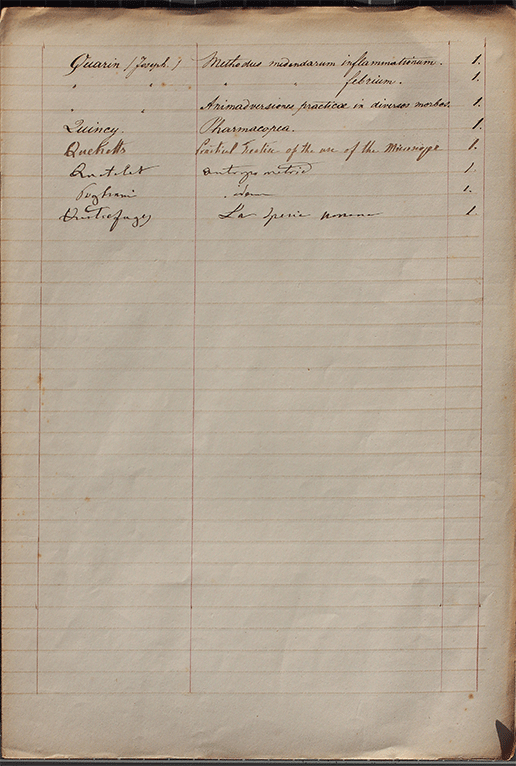 Quarin (Joseph) Methodus medendarum inflammationum. 1.
" " " " febrium. 1.
" " Animadversiones practicæ in diversos morbos. 1.
Quincy. Pharmacopea. 1.
Quekett Practical Treatise of the use of the Microscope 1.
Quetelet antropometrie 1.
idem 1.
Quatrefages La Specie umana 1.